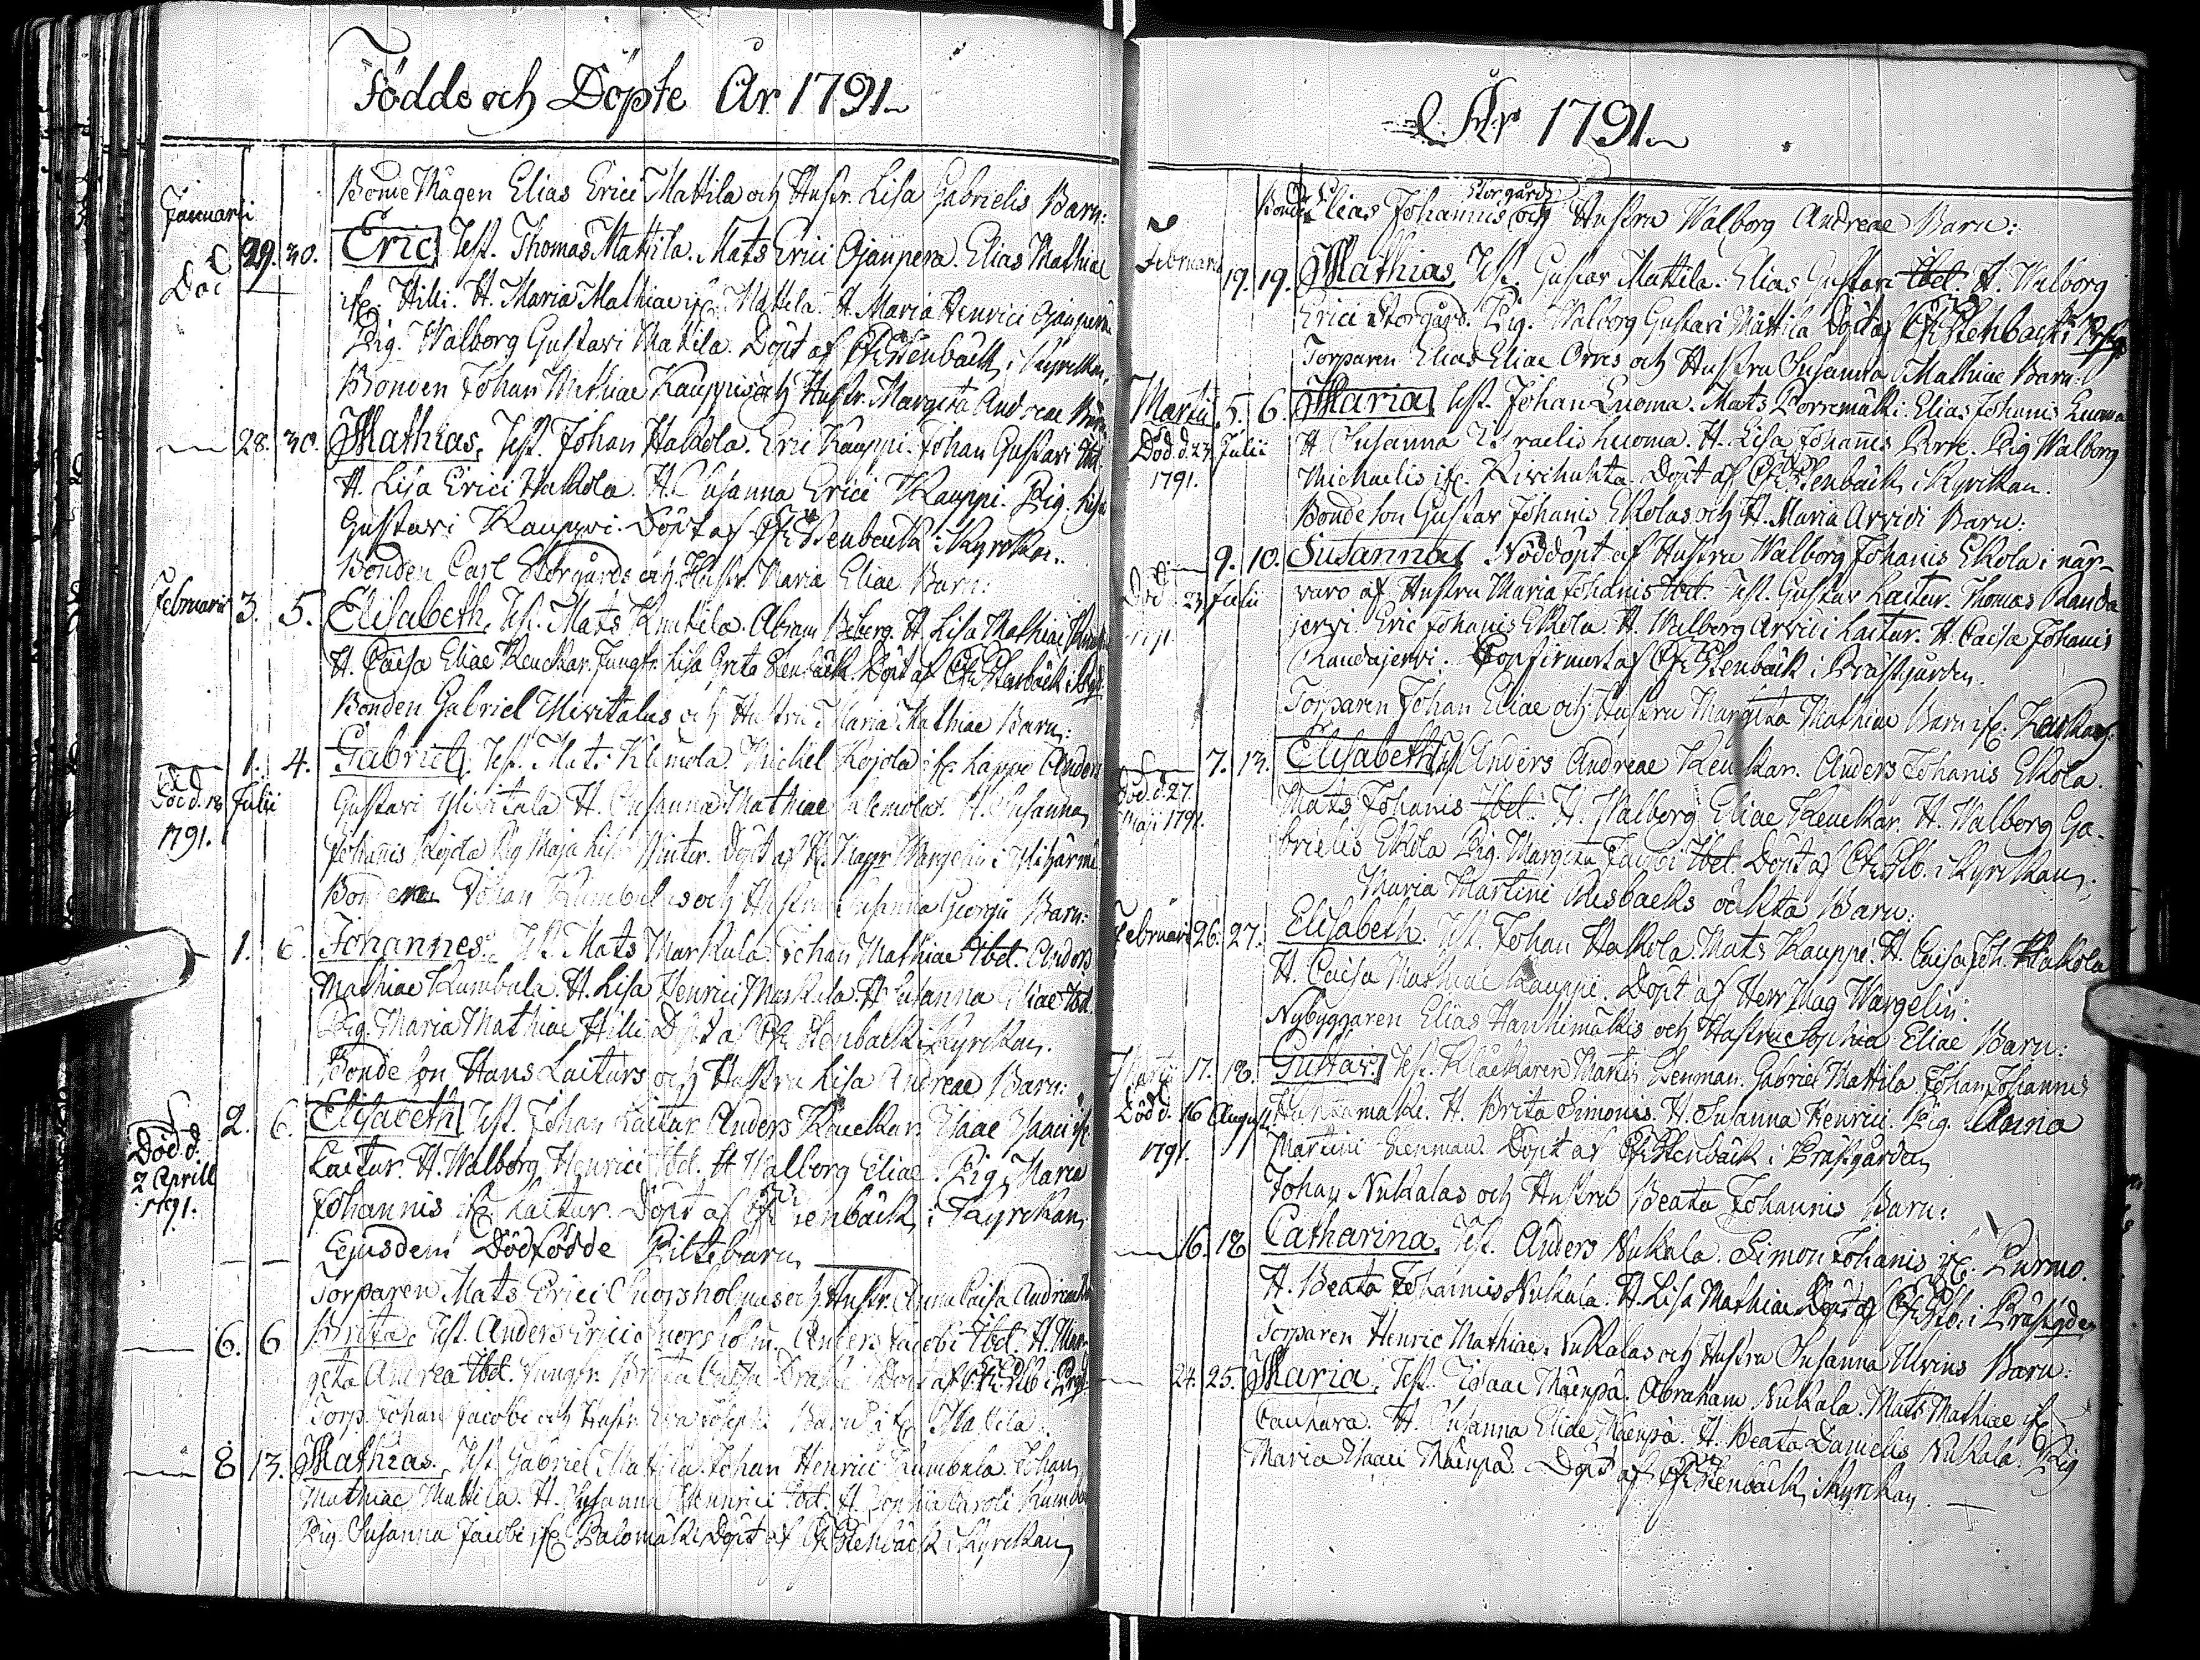 Födde och Döpte År 1791.
Bonde Mågen Elias Erici Mattila och Hustr. Lisa Gabrielis Barn:
Januarii
29. 30. Eric, Test. Thomas Mattila. Mats Erici Ojanpera. Elias Mathiae
Död
ifr. Hilli. H. Maria Mathiae ifr. Mattila. H. Maria Henrici Ojanpera
Pig. Walborg Gustavi Mattila. Döpt af Stenbäck, i Kyrckan.
Bonden Johan Mathiae Kauppis och Hustr. Margeta Andreae Barn
28. 30. Mathias, Test. Johan Hakola. Eric Kauppi. Johan Gustavi Ibd.
H. Lisa Erici Hakola. H. Susanna Erici Kauppi. Pig. Lisa
Gustavi Kauppi. Döpt af Stenbäck i Kyrckan.
Bonden Carl Storgårds och Hustr. Maria Eliae Barn:
Februarii 3. 5. Elisabeth, Test. Mats Knutila. Abram Biberg. H. Lisa Mathiae
H. Caisa Eliae Keuckar. Jungfr. Lisa Greta Stenbäck Döpt af Stenbäck i
Bonden Gabriel Ylivitalas och Hustru Maria Mathiae Barn:
1. 4. Gabriel, Test. Mats Klemola. Mickel Kojola ifr. Lappo Anders
Död d. 18 Julii
1791.
Gustavi Ylivitala H. Susanna Mathiae Klemola. H. Susanna
Johanis Kojola Pig Maja Lisa Winter. Döpt af Wargelin i Ylihärmä
Bonden Johan Kumbulas och Hustru Susanna Georgii Barn:
1. 6. Johannes. Test. Mats Markula. Johan Mathiae Ibd. Anders
Mathiae Kumbula. H. Lisa Henrici Markula. H Susanna Eliae Ibd.
Pig. Maria Mathiae Hilli Döpt af Stenbäck i Kyrckan.
Bonde Son Hans Laiturs och Hustru Lisa Andreae Barn:
2. 6. Elisabeth Test. Johan Laitur Anders Käuckar. Isaac Isaaci ifr.
Död d.
2 Aprill
1791.
Laitur. H. Walborg Henrici Ibd. H Walborg Eliae. Pig. Maria
Johannis ifr. Laitur. Döpt af Stenbäck, i Kyrckan,
Ejusdem Dödfödde Piltebarn
Torparen Mats Erici Snorsholmas och Hustr. Anna Caisa Andreae
6. 6 Brita. Test. Anders Erici Snorsholm. Anders Jacobi Ibd. H. Mar-
geta Andrea Ibd. Jungfr. Brita Caisa Döpt af
Torp. Johan Jacobi och Hustr. Barn ifr. Mattila.
8 13. Mathias. Test. Gabriel Mattila. Johan Henrici Kumbula. Johan
Mathiae Mattila. H. Susanna Henrici Ibd. H. Sophia Caroli Kumbu
Pig. Susanna Jacobi ifr. Palomäki Döpt af Stenbäck i Kyrckan,
År 1791.
Storgårds
Bonde Elias Johannis och Hustru Walborg Andreae Barn:
Februarii
19. 19. Mathias, Test. Gustav Mattila. Elias Gustavi Ibd. H. Walborg
Erici Storgård. Pig. Walborg Gustavi Mattila Döpt af Stenbäck i
Torparen Elias Eliae Orres och Hustru Susanna Mathiae Barn:
Martii 5. 6. Maria, Test. Johan Luoma. Mats Porremäki. Elias Johanis Luoma
Död. d. 23 Julii
1791.
H. Susanna Israelis Luoma. H. Lisa Johannis Porre. Pig Walborg
Michaelis ifr. Kivihuhta. Döpt af Stenbäck, i Kyrckan.
Bonde Son Gustav Johanis Ekolas och H. Maria Arvidi Barn:
9. 10. Susanna, Nöddöpt af Hustru Walborg Johanis Ekola i när-
Död. 23 Julii
varo af Hustru Maria Johanis Ibd. Test. Gustav Laitur. Thomas Kauda
jervi. Eric Johanis Ekola. H. Walborg Arvidi Laitur. H. Caisa Johanis
Kaudajervi. Confirmerat af Stenbäck i Prästgården.
Torparen Johan Eliae och Hustru Margeta Mathiae Barn ifr. Keuckar.
7. 13. Elisabeth, Test Anders Andreae Keuckar. Anders Johanis Ekola.
Död. d. 27.
Maji 1791.
Mats Johanis Ibd. H. Walborg Eliae Keuckar. H. Walborg Ga-
brielis Ekola Pig. Margeta Jacobi Ibd. Döpt af i Kyrckan,
Maria Martini Åkta Barn:
Februarii 26. 27. Elisabeth. Test. Johan Hakola Mats Kauppi. H. Caisa Joh. Hakola
H. Caisa Mathiae Kauppi. Döpt af Herr Mag Wargelin:
Nybyggaren Elias Hanhimäkis och Hustru Sophia Eliae Barn:
Martii 17. 18. Gustav. Test. Klåckaren Martin Lenman. Gabriel Mattila Johan Johannis
Död d. 16 August.
1791.
H. Brita Simonis. H. Susanna Henrici. Pig. Anna
Martini Lenman. Döpt af Stenbäck i Prästgården
Johan Nukalas och Hustru Beata Johannis Barn:
16. 18 Catharina, Test. Anders Nukala. Simon Johanis ifr. Purmo.
H. Beata Johannis Nukala. H. Lisa Mathiae Döpt af i Prästgden
Torparen Henric Mathiae Nukalas och Hustru Susanna Barn:
24. 25. Maria, Test. Isaac Mäenpä. Abraham Nukala. Mats Mathiae ifr.
Cauhava. H. Susanna Eliae Mäenpä. H. Beata Danielis Nukala. Pig
Maria Isaaci Mäenpä. Döpt af Stenbäck, i Kyrckan.